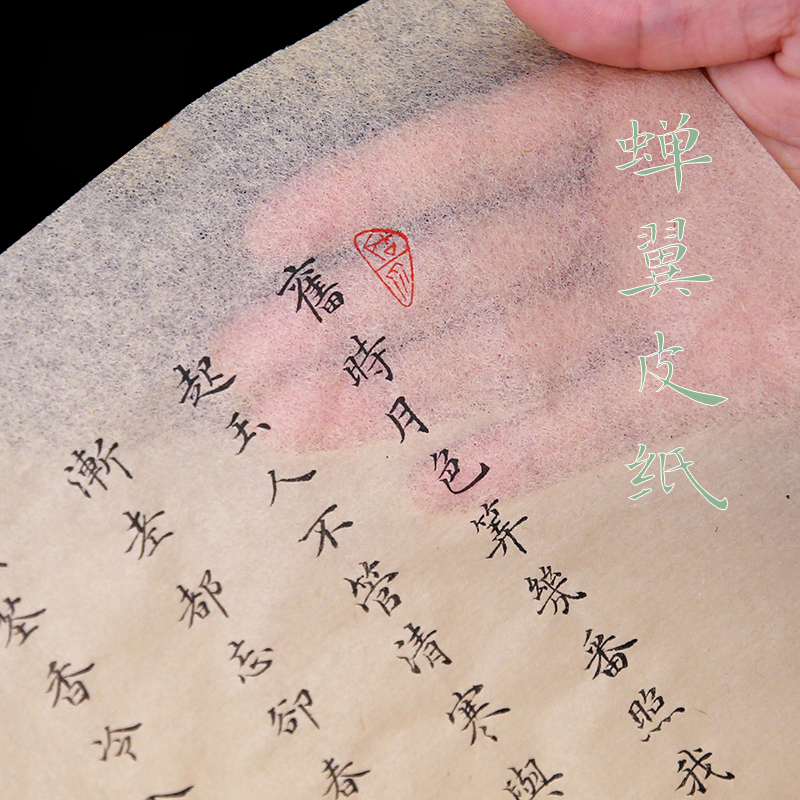 蝉翼皮纸
舊時月色筭幾番照我
起玉人不管清寒與
漸老都忘卻春
香冷